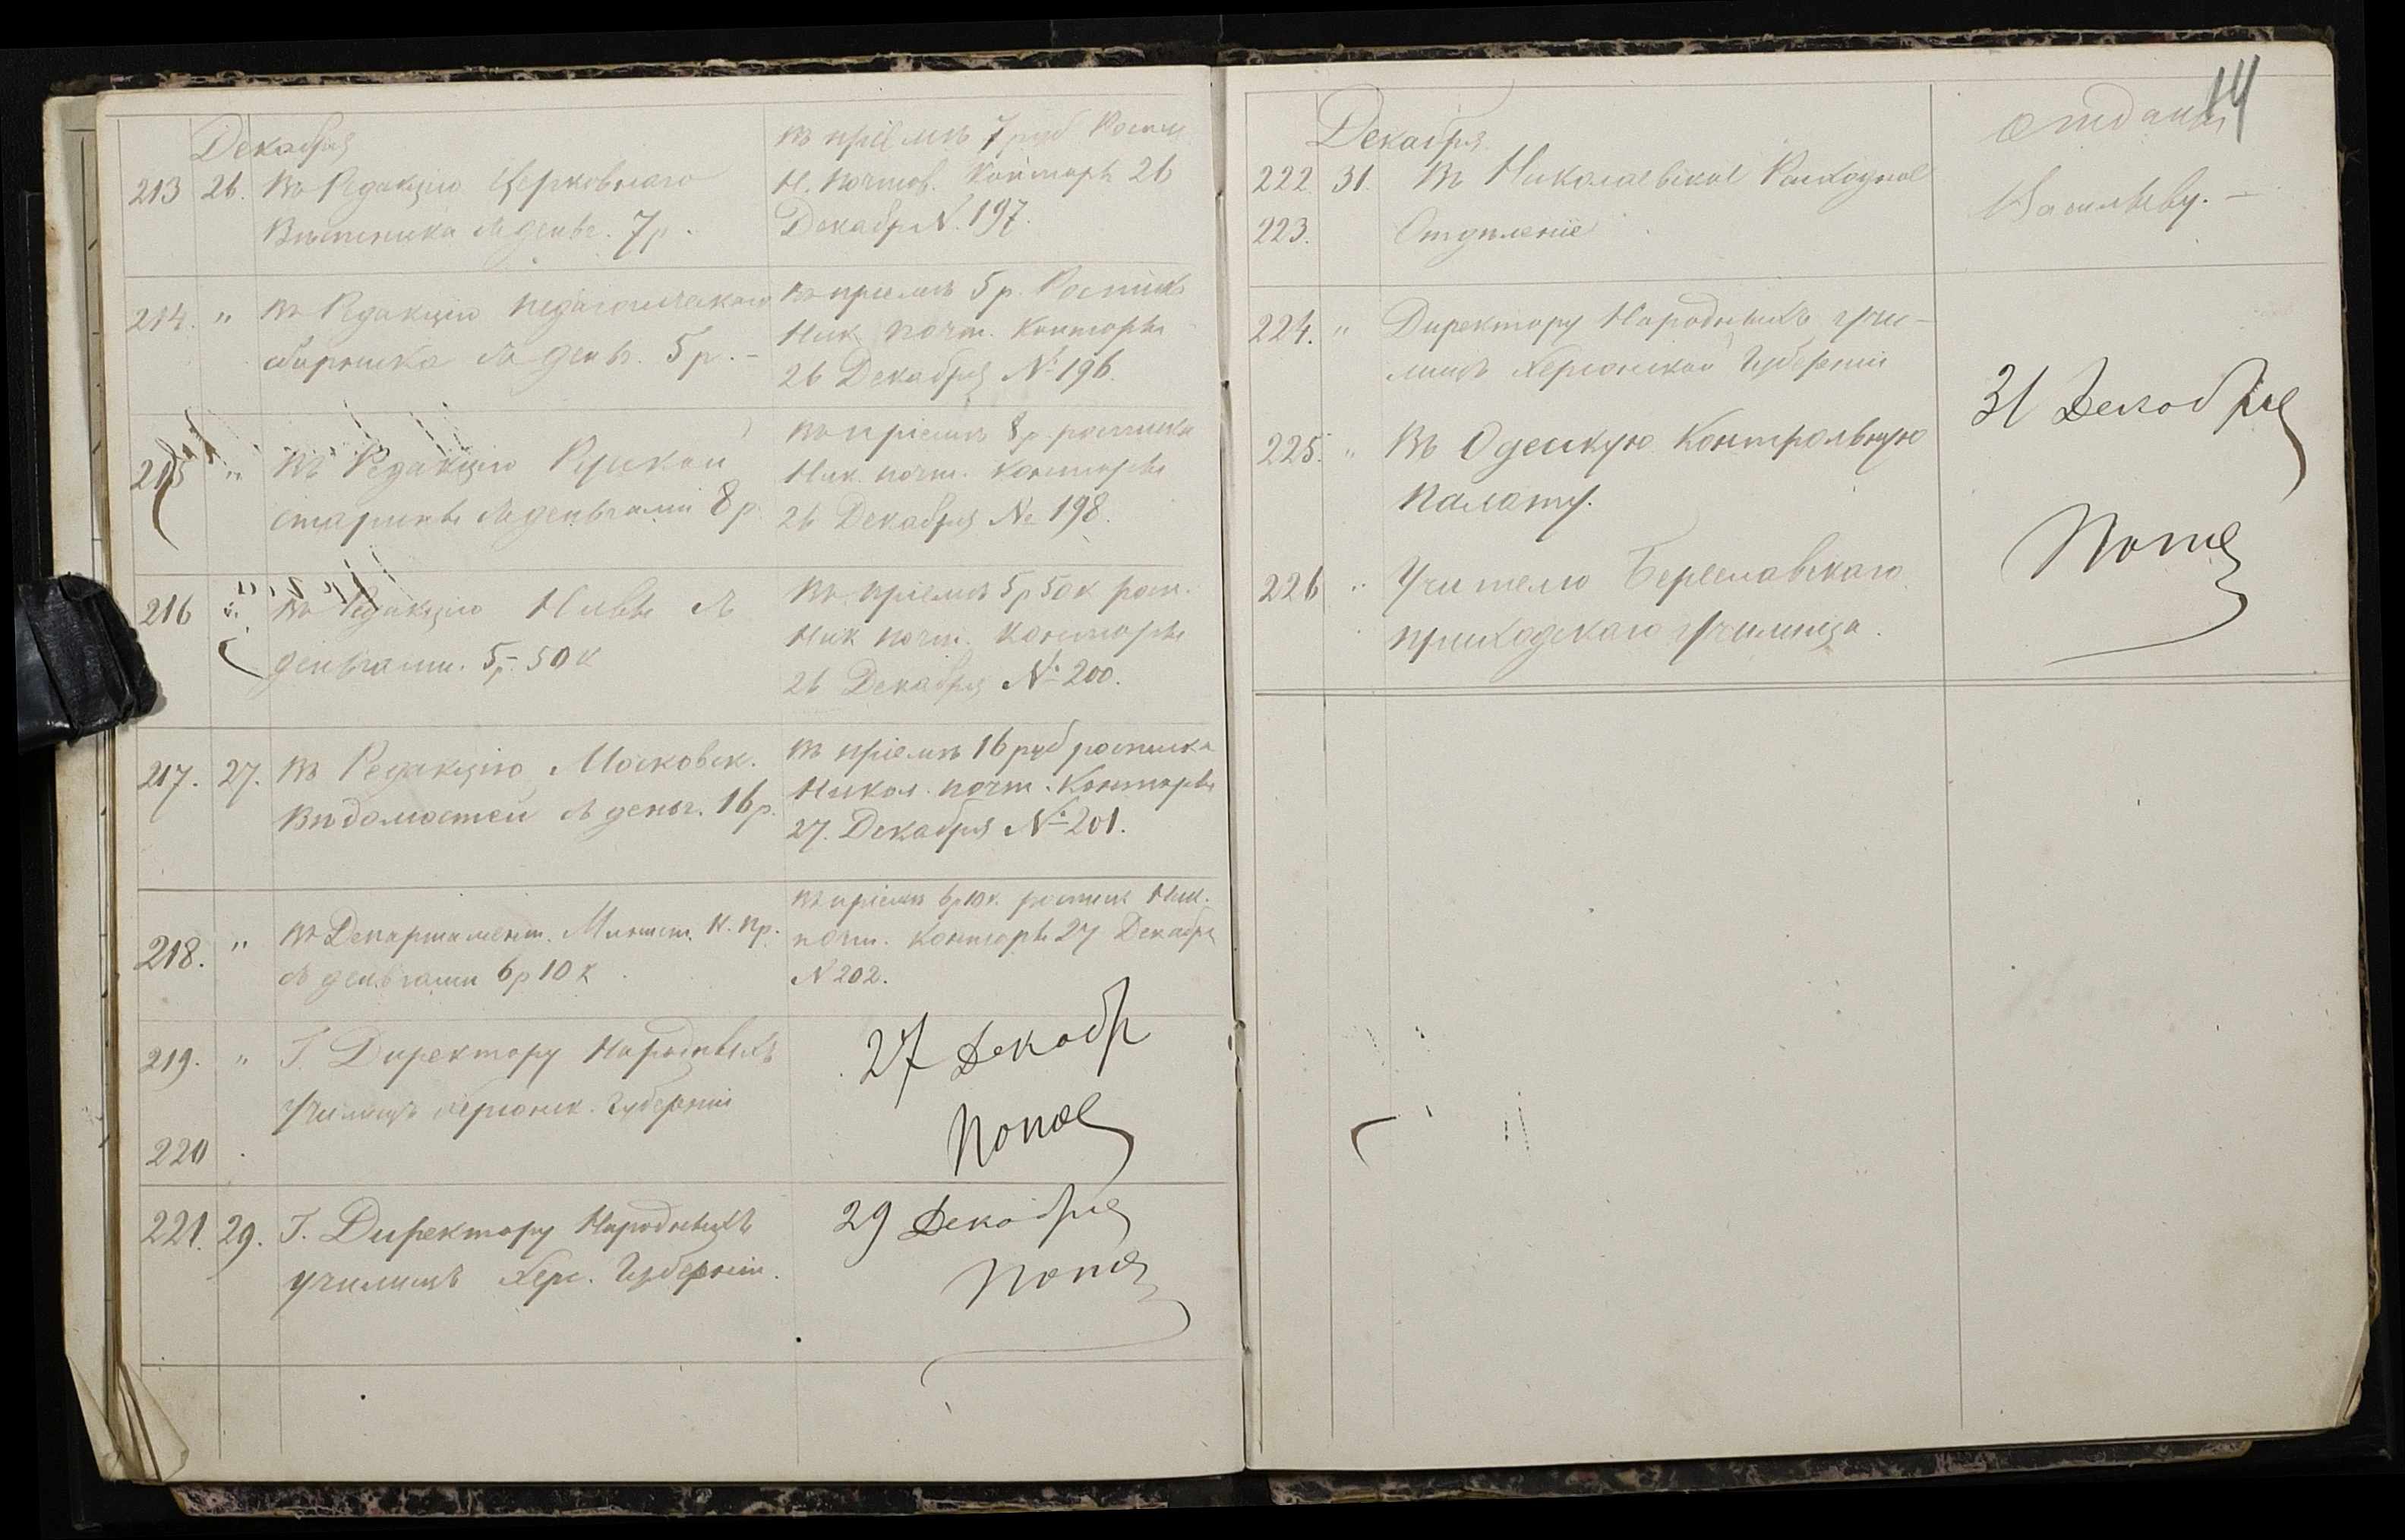 Декабря
213 26. Въ Редакцію Церковнаго
Вѣстника съ деньг. 7 р.
въ пріемѣ 7 руб Распис
Н. Почтов. Конторѣ 26
Декабр N. 197.
214. " Въ Редакцію Педагогическаго
сборника съ деньг. 5 р. –
Въ пріемѣ 5 р. Росписк
Ник. почт. Конторы
26 Декабря № 196.
215 " Въ Редакцію Русской
старины съ деньгами 8 р.
Въ пріемѣ 8 р. росписка
Ник. почт. Конторы
26 Декабря № 198.
216 " Въ Редакцію Нивы съ
деньгами. 5 р. 50 к
Въ пріемѣ 5 р 50 к росп.
Ник почт. Конторы
26 Декабря № 200.
217. 27. Въ Редакцію Московск.
Вѣдомостей съ деньг. 16 р.
въ пріемѣ 16 руб росписка
Никол. почт. Конторы
27. Декабря № 201.
218. " Въ Департамент. Минист. Н. Пр.
съ деньгами 6 р 10 к
въ пріемѣ 6 р 10 к. Ник.
почт. Конторы 27 Декабря
N 202.
219. " Г. Директору Народныхъ
училищъ Херсонск. Губерніи
220
27 Декабр
221. 29. Г. Директору Народныхъ
училищъ Херс. Губерніи.
29 Декабря
14
Декабря
222 31. Въ Николаевское Расходное
223. Отдѣленіе
Отданы
Васильеву. –
224. " Директору Народныхъ учи-
лищъ Херсонской Губерніи
225. " Въ Одесскую Контрольную
Палату.
31 Декабря
226 " Учителю Бериславскаго
приходскаго училища.